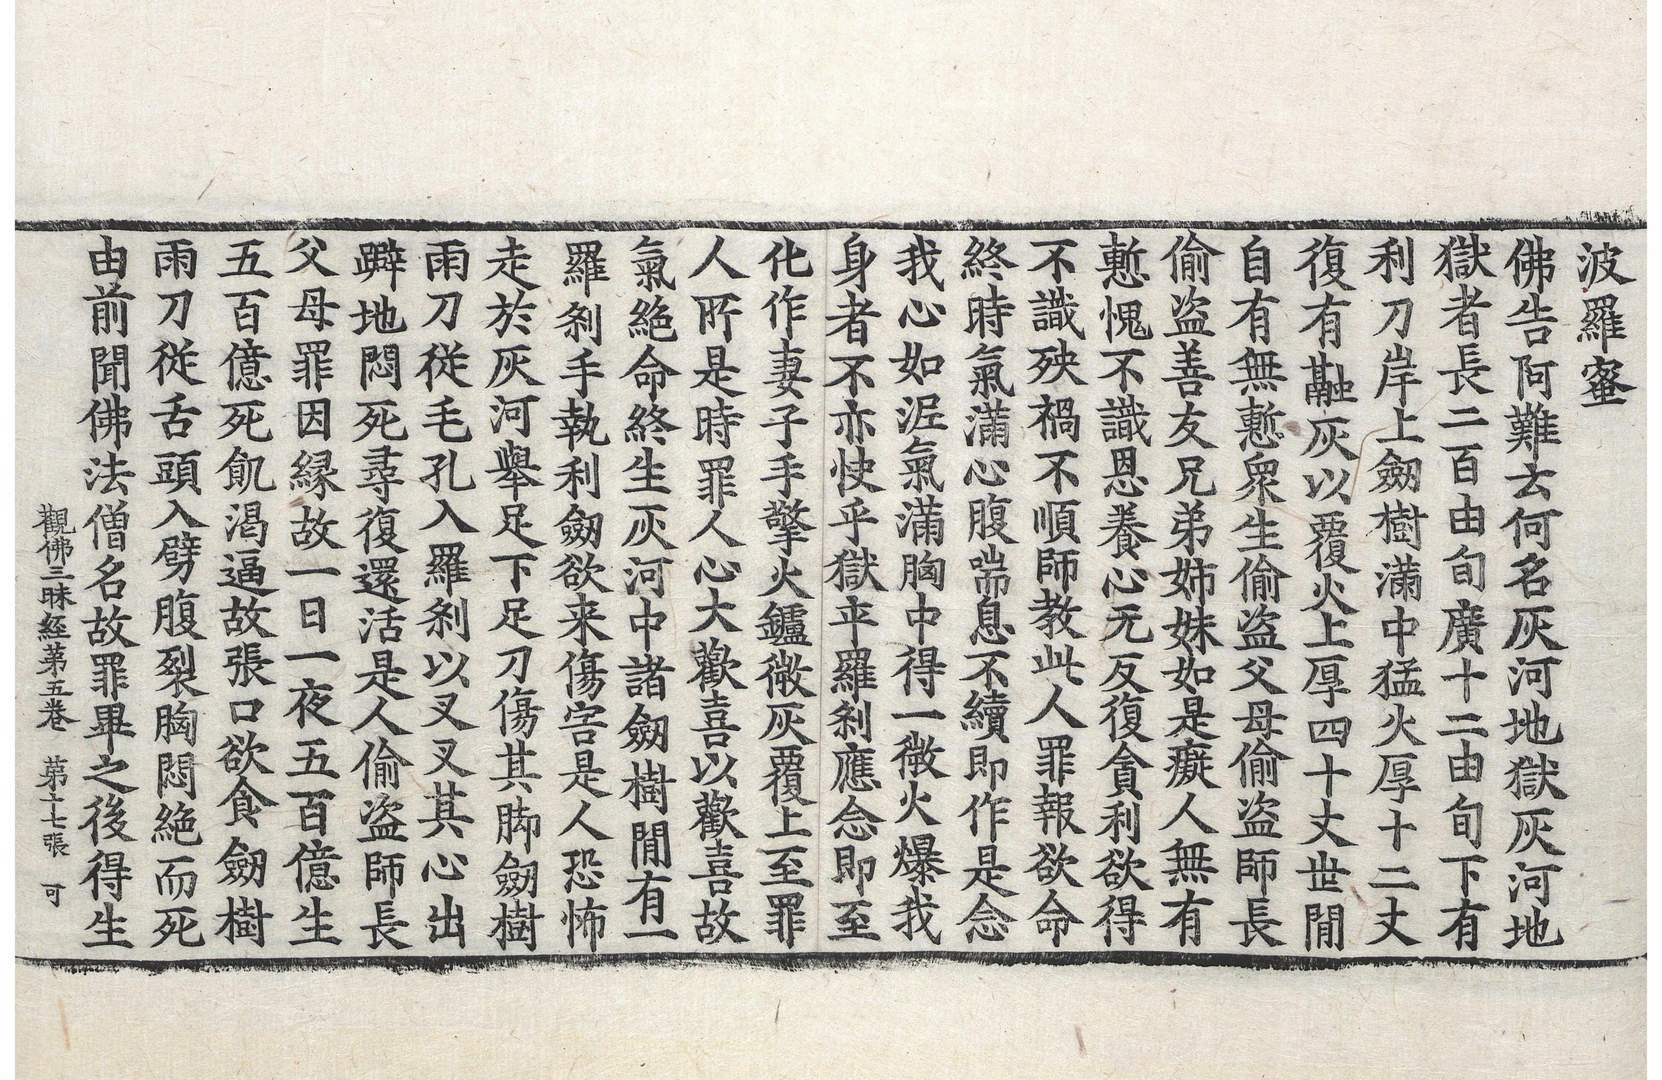 波羅蜜
佛告阿難云何名灰河地獄灰河地
獄者長二百由旬廣十二由旬下有
利刀岸上劔樹滿中猛火厚十二丈
復有融灰以覆火上厚四十丈世閒
自有無慙衆生偷盗父母偷盗師長
偷盗善友兄弟姊妹如是癡人無有
慙愧不識恩養心无反復貪利欲得
不識殃禍不順師教此人罪報欲命
終時氣滿心腹喘息不續即作是念
我心如泥氣滿胸中得一微火爆我
身者不亦快乎獄卒羅刹應念即至
化作妻子手擎火鑪微灰覆上至罪
人所是時罪人心大歡喜以歡喜故
氣絶命終生灰河中諸劔樹閒有一
羅刹手執利劔欲来傷害是人恐怖
走於灰河舉足下足刀傷其脚劔樹
雨刀從毛孔入羅刹以叉叉其心出
躃地悶死尋復還活是人偷盗師長
父母罪因縁故一日一夜五百億生
五百億死飢渴逼故張口欲食劔樹
雨刀從舌頭入劈腹裂胸悶絶而死
由前聞佛法僧名故罪畢之後得生
觀佛三昧経第五卷 第十七張 可